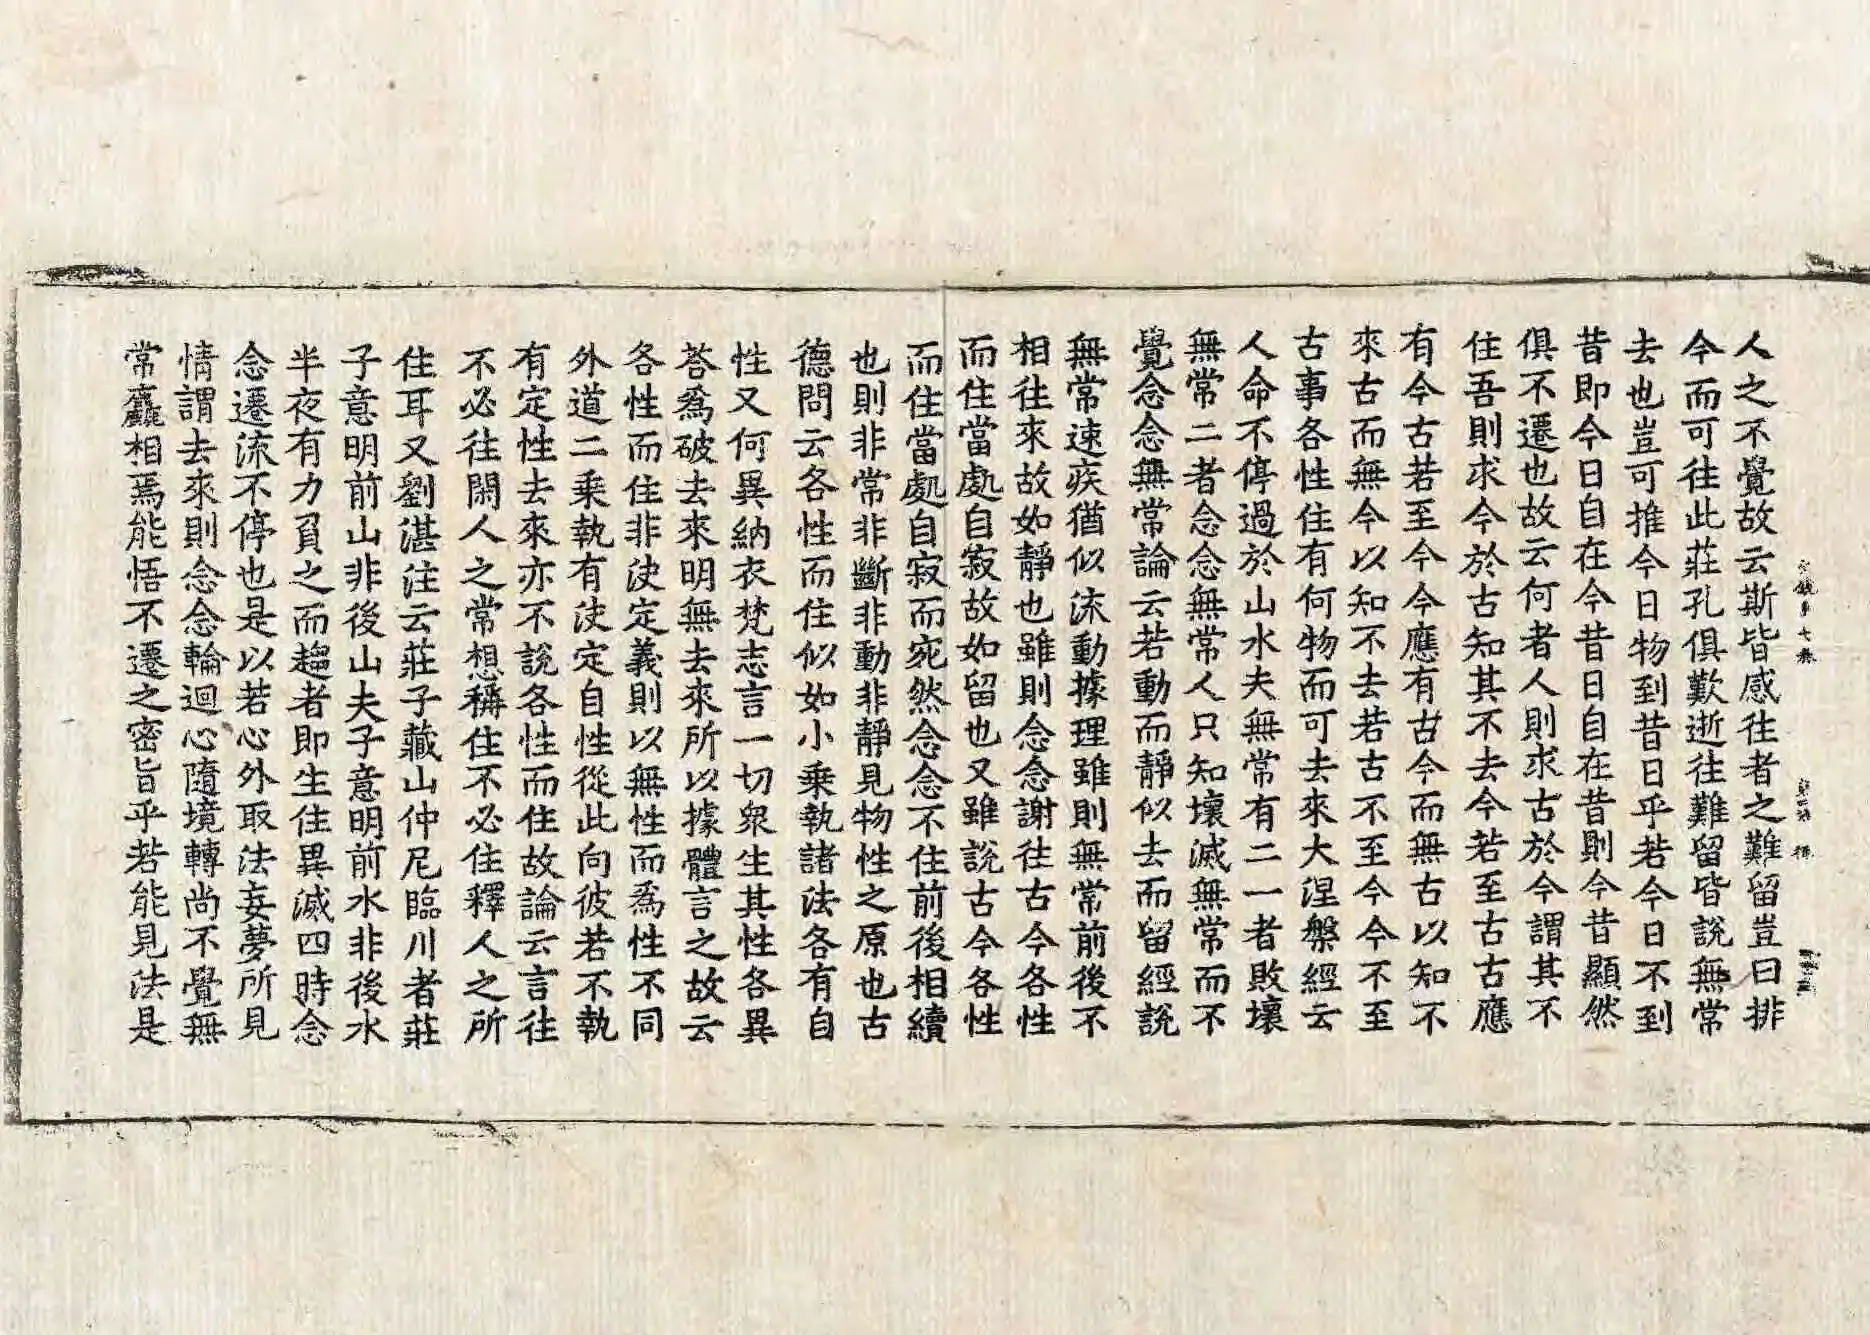 人之不覺故云斯皆感往者之難留豈曰排
今而可往此莊孔俱歎逝往難留皆說無常
去也豈可推今日物到昔日乎若今日不到
昔即今日自在今昔日自在昔則今昔顯然
俱不遷也故云何者人則求古於今謂其不
住吾則求今於古知其不去今若至古古應
有今古若至今今應有古今而無古以知不
來古而無今以知不去若古不至今今不至
古事各性住有何物而可去來大涅槃經云
人命不停過於山水夫無常有二一者敗壞
無常二者念念無常人只知壞滅無常而不
覺念念無常論云若動而靜似去而留經說
無常速疾猶似流動據理雖則無常前後不
相往來故如靜也雖則念念謝往古今各性
而住當處自寂故如留也又雖說古今各性
而住當處自寂而宛然念念不住前後相續
也則非常非斷非動非靜見物性之原也古
德問云各性而住似如小乘執諸法各有自
性又何異納衣梵志言一切衆生其性各異
荅爲破去來明無去來所以據體言之故云
各性而住非決定義則以無性而爲性不同
外道二乘執有決定自性從此向彼若不執
有定性去來亦不說各性而住故論云言往
不必往閑人之常想稱住不必住釋人之所
住耳又劉湛注云莊子藏山仲尼臨川者莊
子意明前山非後山夫子意明前水非後水
半夜有力負之而趨者即生住異滅四時念
念遷流不停也是以若心外取法妄夢所見
情謂去來則念念輪迴心隨境轉尚不覺無
常麤相焉能悟不遷之密旨乎若能見法是